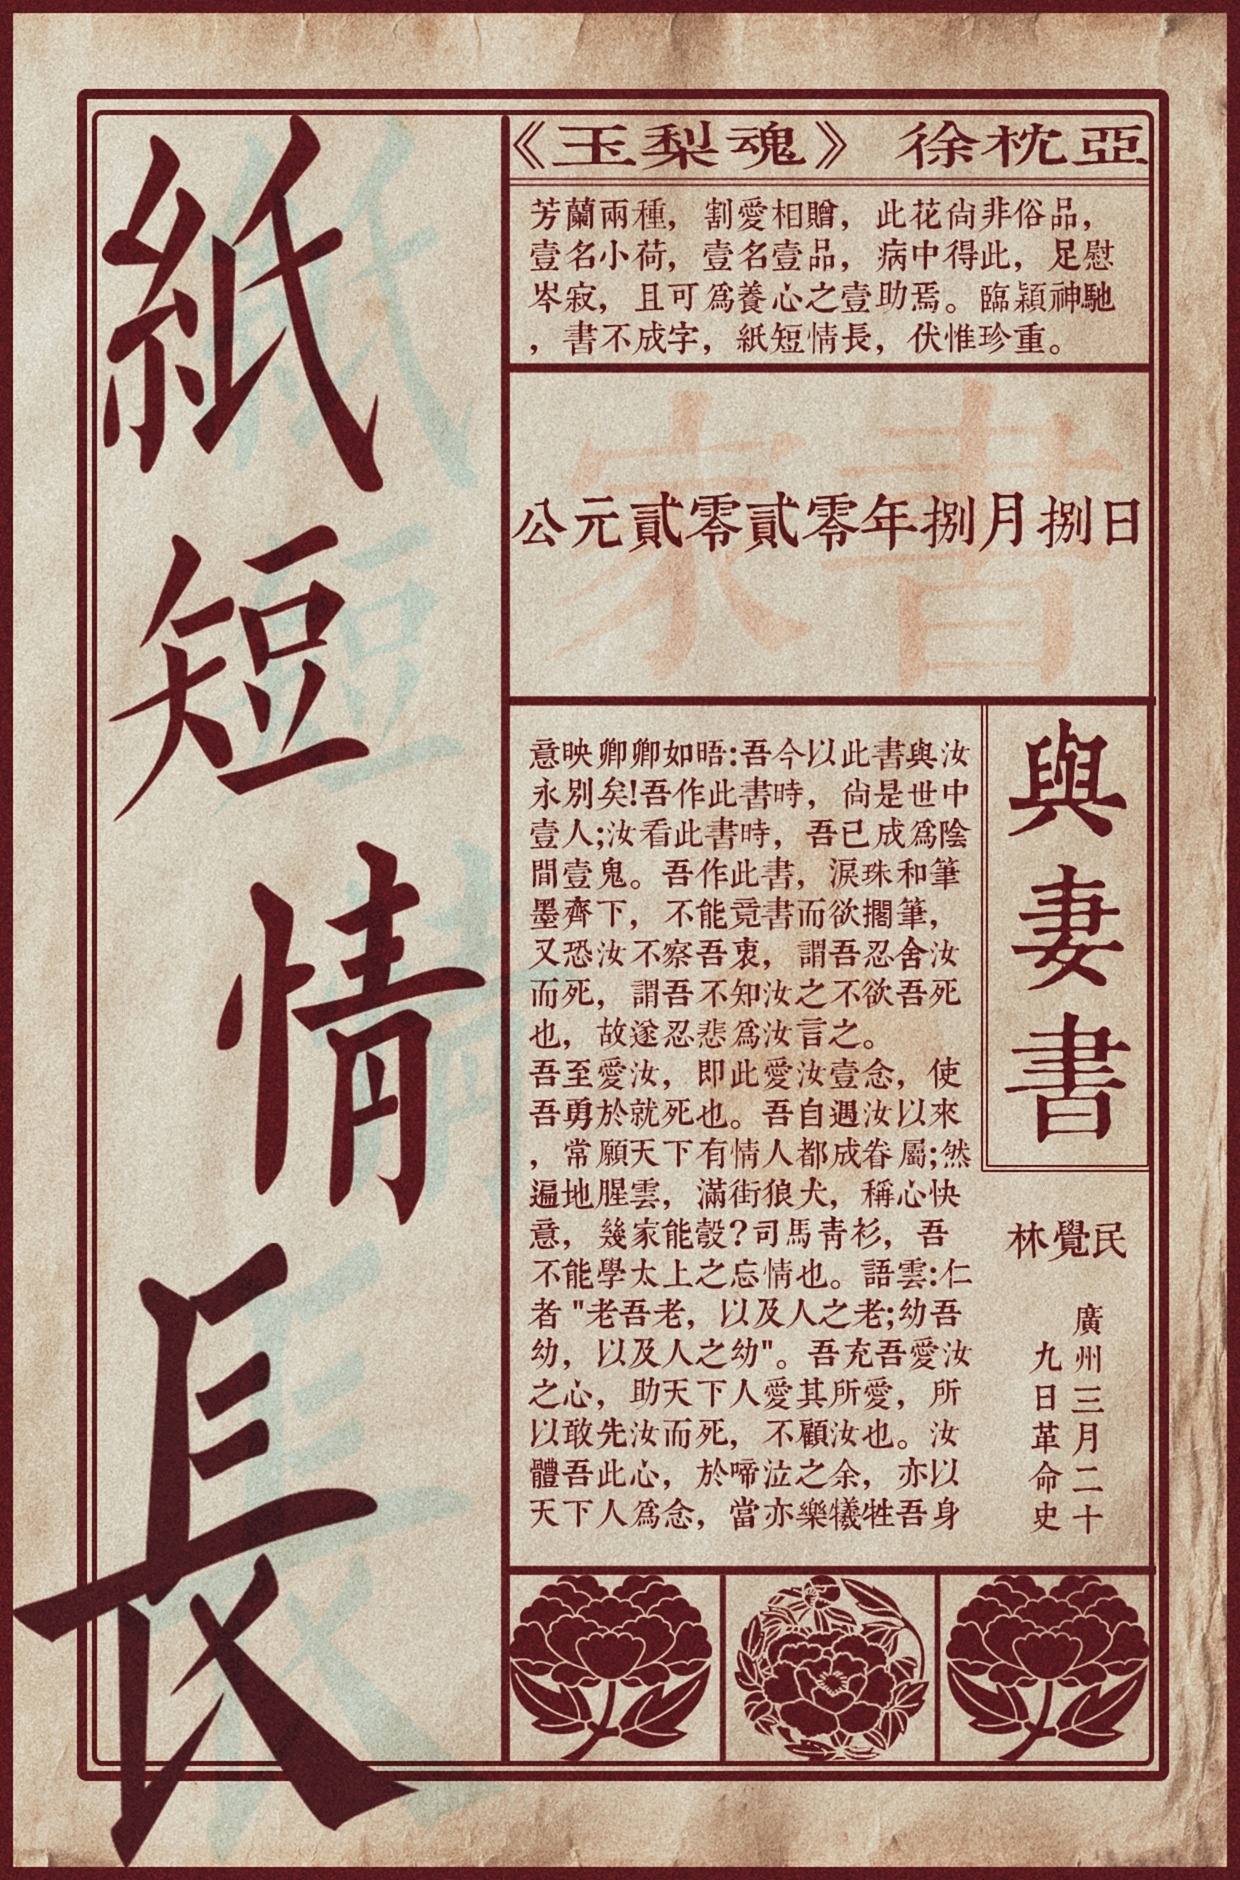 紙短情長
《玉梨魂》 徐枕亞
芳蘭兩種，割愛相贈，此花尙非俗品，
壹名小荷，壹名壹品，病中得此，足慰
岑寂，且可爲養心之壹助焉。臨穎神馳
，書不成字，紙短情長，伏惟珍重。
家書
公元貳零貳零年捌月捌日
與妻書
林覺民
廣州三月二十
九日革命史
意映卿卿如晤:吾今以此書與汝
永別矣!吾作此書時，尙是世中
壹人;汝看此書時，吾已成爲陰
間壹鬼。吾作此書，淚珠和筆
墨齊下，不能竟書而欲擱筆，
又恐汝不察吾衷，謂吾忍舍汝
而死，謂吾不知汝之不欲吾死
也，故遂忍悲爲汝言之。
吾至愛汝，即此愛汝壹念，使
吾勇於就死也。吾自遇汝以來
，常願天下有情人都成眷屬;然
遍地腥雲，滿街狼犬，稱心快
意，幾家能彀?司馬青衫，吾
不能學太上之忘情也。語雲:仁
者 "老吾老，以及人之老;幼吾
幼，以及人之幼"。吾充吾愛汝
之心，助天下人愛其所愛，所
以敢先汝而死，不顧汝也。汝
體吾此心，於啼泣之余，亦以
天下人爲念，當亦樂犧牲吾身